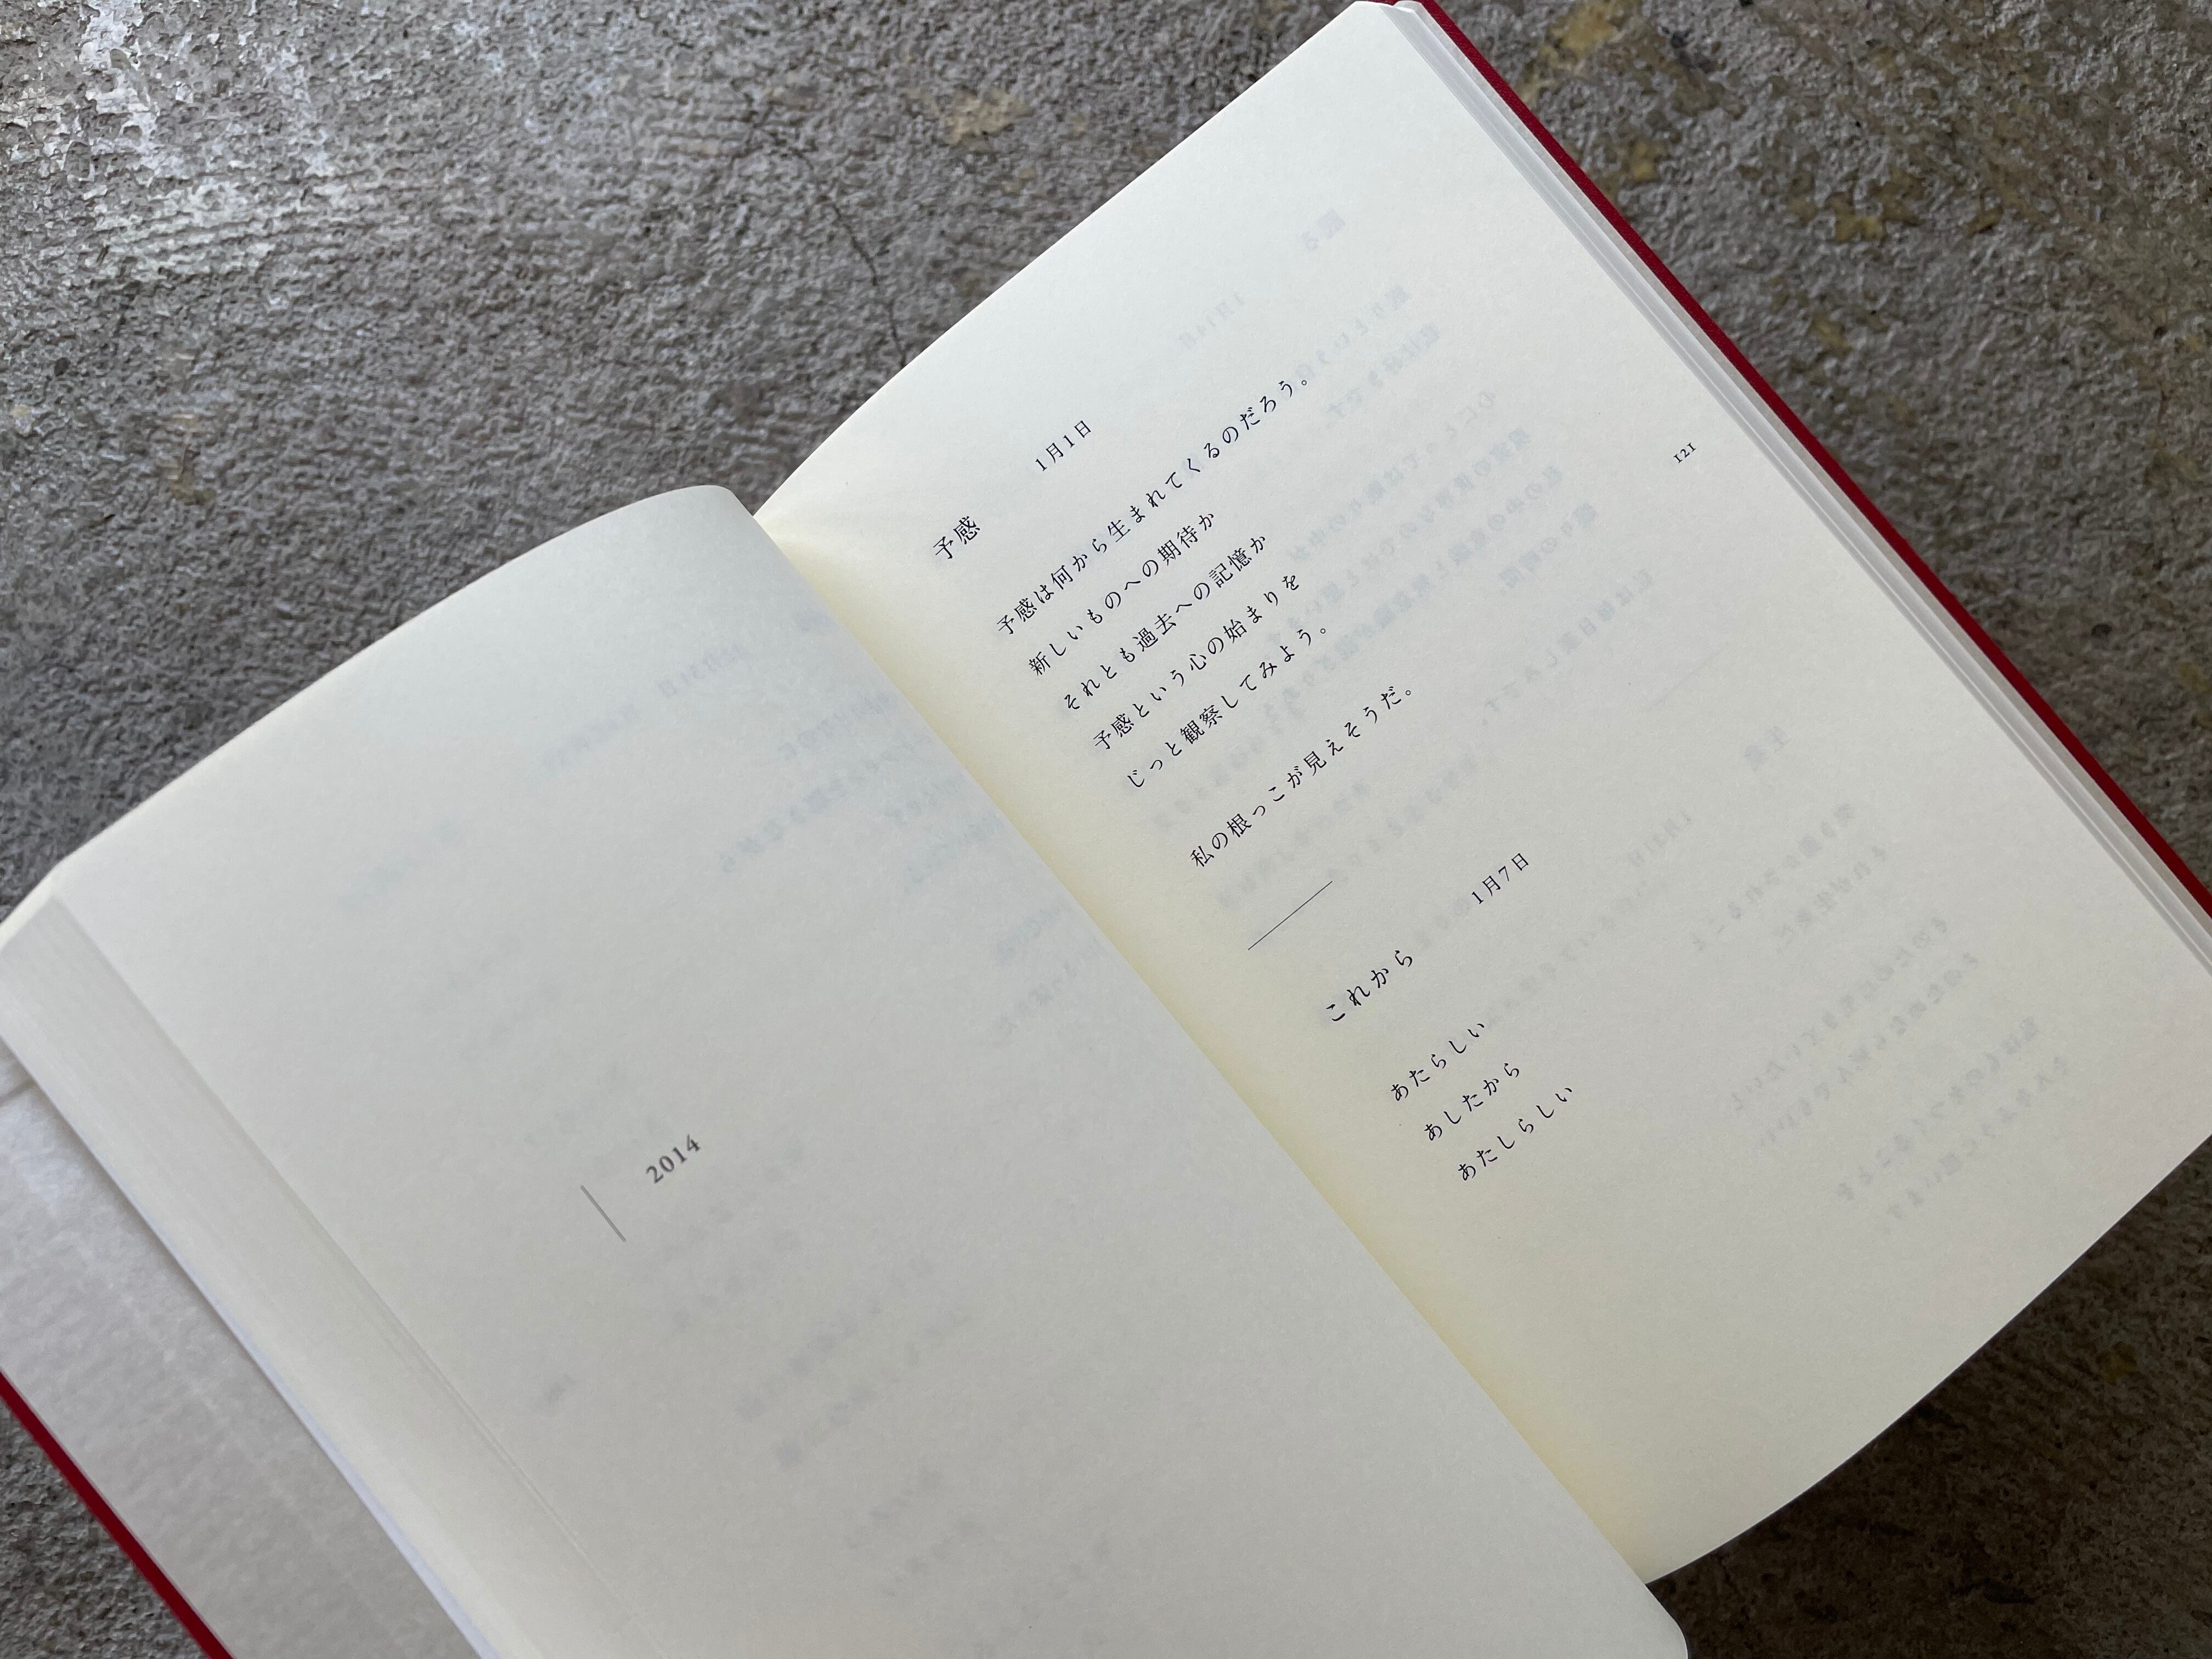 2014
予感
1月1日
予感は何から生まれてくるのだろう。
新しいものへの期待か
それとも過去への記憶か
予感という心の始まりを
じっと観察してみよう。
私の根っこが見えそうだ。
これから
1月7日
あたらしい
あしたから
あたしらしい
121